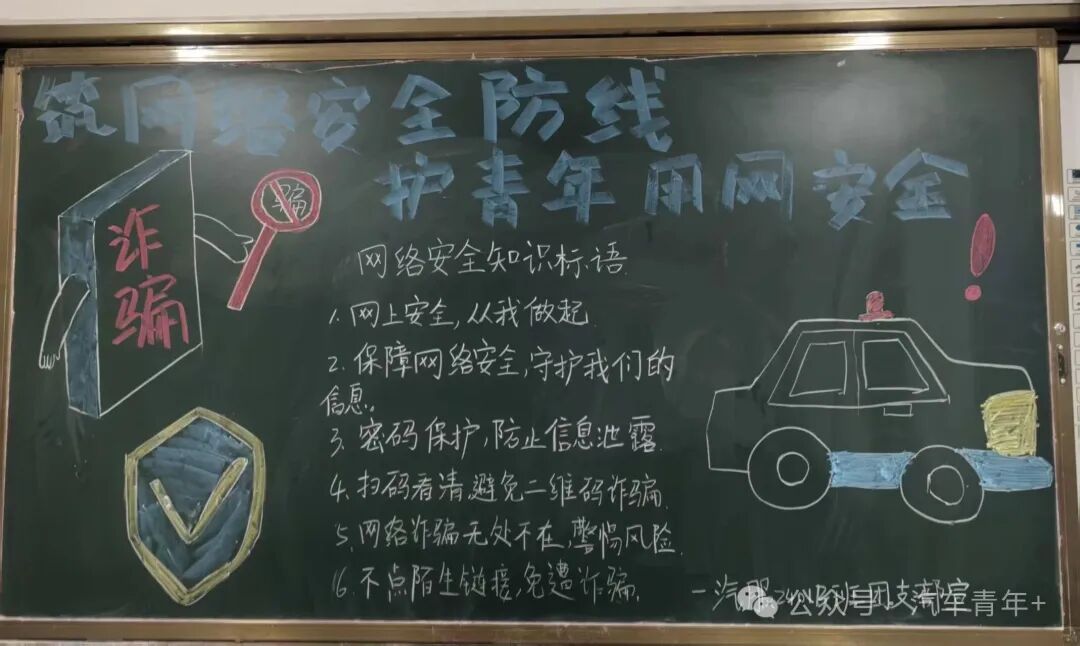 筑网络安全防线
护青年用网安全
诈骗
骗
网络安全知识标语
1.网上安全,从我做起
2.保障网络安全,守护我们的
信息。
3.密码保护,防止信息泄露.
4.扫码看清避免二维码诈骗.
5.网络诈骗无处不在,警惕风险.
6.不点陌生链接,免遭诈骗.
公众号·汽车青年+